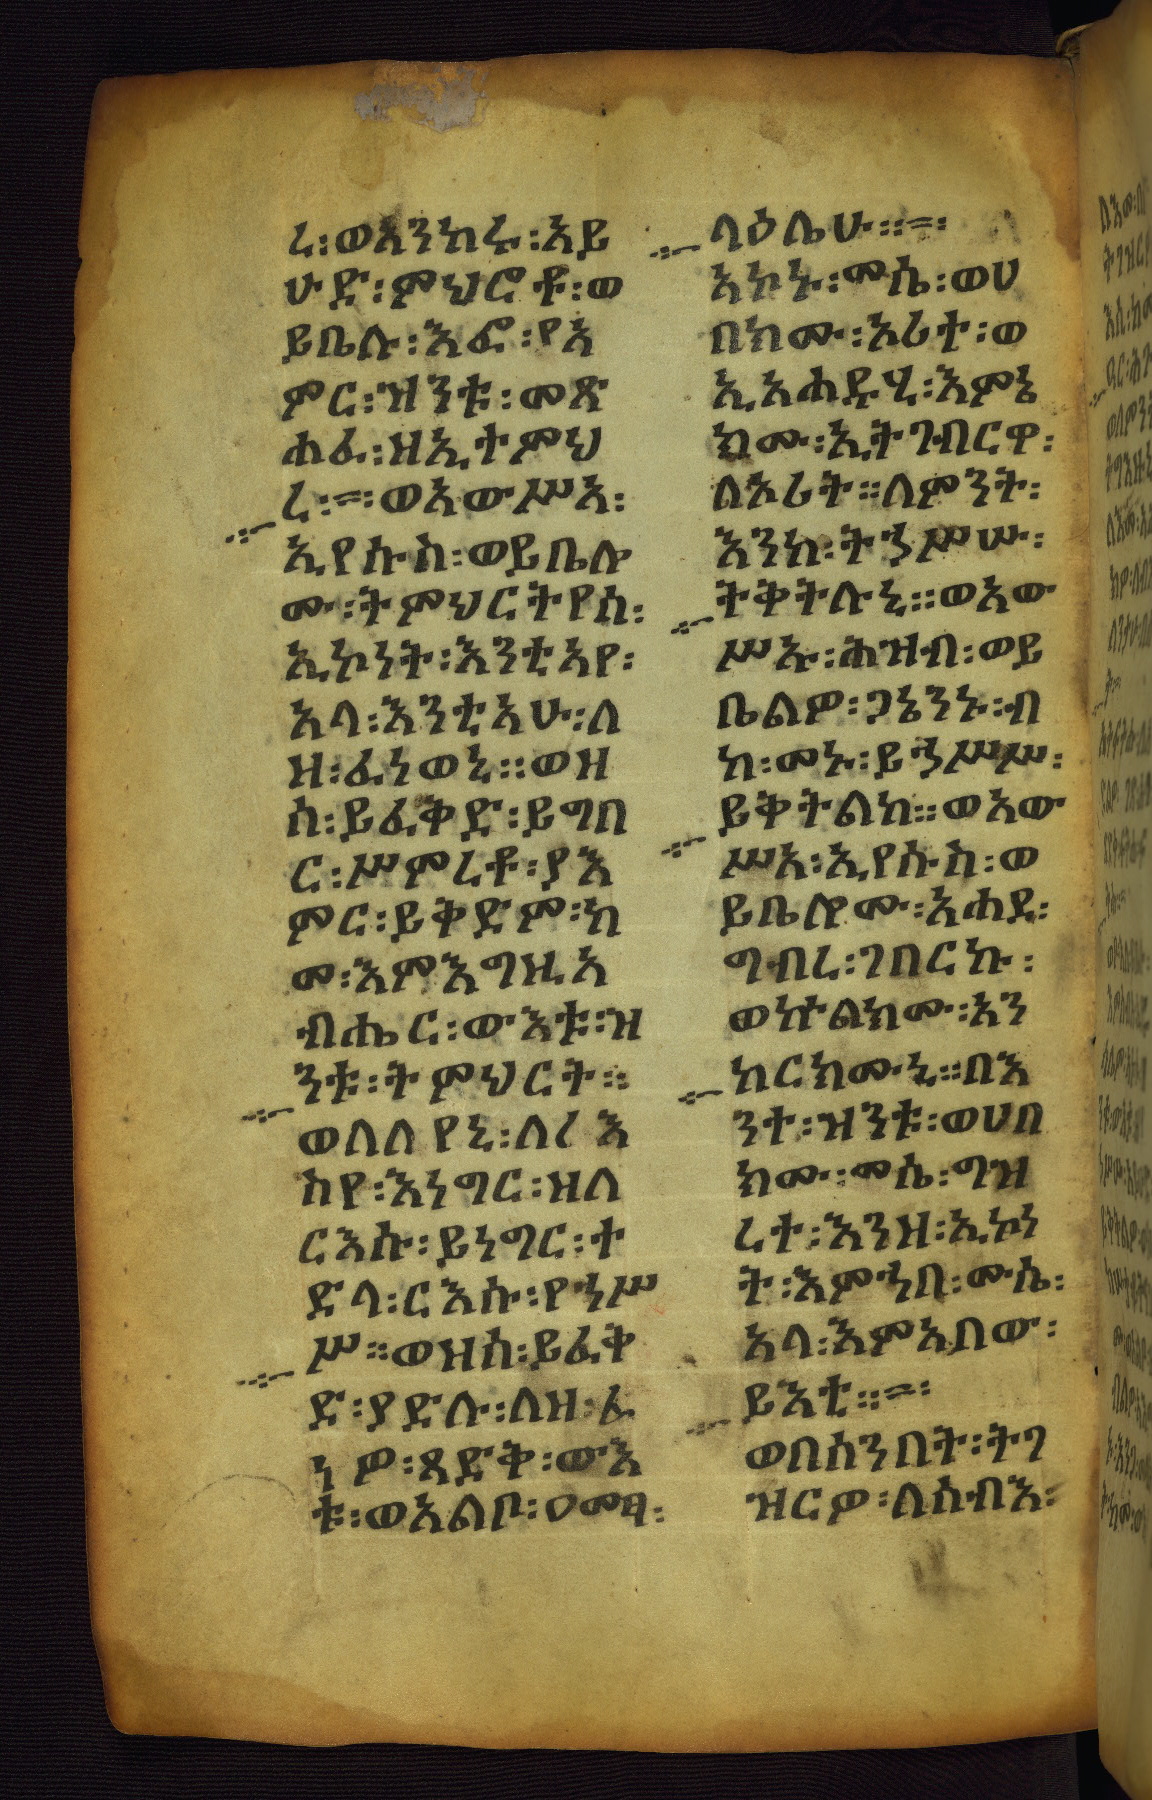 ረ፡ወአንከሩ፡አይ
ሁድ፡ምህሮቶ፡ወ
ይቤሉ፡እፎ፡የአ
ምር፡ዝንቱ፡መጽ
ሐፈ፡ዘኢተምህ
ረ፡፡ወአውሥአ፡
ኢየሱስ፡ወይቤሎ
ሙ፡ትምህርትየሰ፡
ኢኮነት፡እንቲአየ፡
አላ፡እንቲአሁ፡ለ
ዘ፡ፈነወኒ።ወዘ
ሰ፡ይፈቅድ፡ይግበ
ር፡ሥምረቶ፡ያእ
ምር፡ይቅድም፡ከ
መ፡እምእግዚአ
ብሔር፡ውእቱ፡ዝ
ንቱ፡ትምህርት።
ወለለየኒ፡ለርእ
ስየ፡እነግር፡ዘለ
ርእሱ፡ይነግር፡ተ
ድላ፡ርእሱ፡የኀሥ
ሥ።ወዝሰ፡ይፈቅ
ድ፡ያድሉ፡ለዘ፡ፈ
ነዎ፡ጻድቅ፡ውእ
ቱ፡ወአልቦ፡ዐመፃ፡
ላዕሌሁ።፡
አኮኑ፡ሙሴ፡ወሀ
በክሙ፡ኦሪተ፡ወ
ኢአሐዱሂ፡እምኔ
ክሙ፡ኢትገብርዋ፡
ለኦሪት።ለምንት፡
እንከ፡ትኀሥሡ፡
ትቅትሉኒ።ወአው
ሥኡ፡ሕዝብ፡ወይ
ቤልዎ፡ጋኔንኑ፡ብ
ከ፡መኑ፡ይኀሥሥ፡
ይቅትልከ።ወአው
ሥአ፡ኢየሱስ፡ወ
ይቤሎሙ፡አሐደ፡
ግብረ፡ገበርኩ፡
ወኵልክሙ፡አን
ከርክሙኒ።በእ
ንተ፡ዝንቱ፡ወሀበ
ክሙ፡ሙሴ፡ግዝ
ረተ፡እንዘ፡ኢኮነ
ት፡እምኀበ፡ሙሴ፡
አላ፡እምአበው፡
ይእቲ።፡
ወበሰንበት፡ትገ
ዝርዎ፡ለሰብእ፡